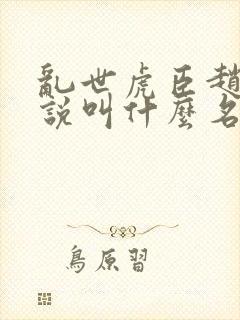 亂世虎臣趙
說叫什麼名
鳥原習